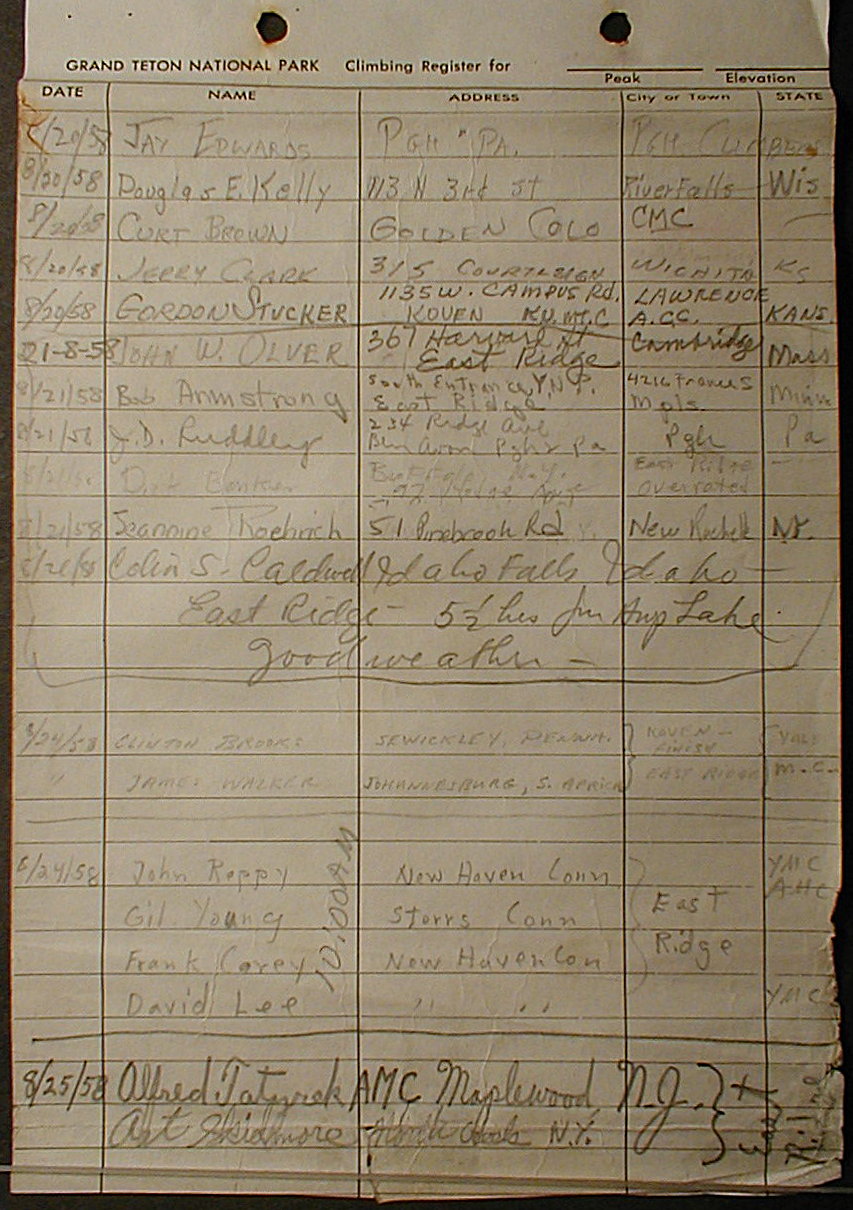 GRAND TETON NATIONAL PARK Climbing Register for
Peak Elevation
DATE NAME ADDRESS City or Town STATE
8/20/58 JAY EDWARDS PGH PA. PGH CLIMBERS
8/20/58 Douglas E. Kelly 113 N 3rd St River Falls Wis
8/20/58 CURT BROWN GOLDEN COLO CMC
8/20/58 JERRY CLARK 315 COURTLEIGH WICHITA KS
1135 W. CAMPUS Rd. LAWRENCE
8/20/58 GORDON STUCKER KOVEN KU.MT.C A.C.C. KANS.
21-8-58 JOHN W. OLVER 367 Harvard St Cambridge Mass
East Ridge
8/21/58 Bob Armstrong South Entrance, Y.N.P. 4216 Frances Minn
East Ridge Mpls.
8/21/58 J.D. 234 Ridge Ave Pgh Pa
Ben Avon Pgh 2 Pa
8/21/58 Dick N.Y. East Ridge
92 Ave overrated
8/21/58 Jeannine 51 Pinebrook Rd New Rochelle NY.
8/21/58 Colin S. Caldwell Idaho Falls Idaho -
East Ridge - 5½ hrs fm Amp Lake
good weather -
8/24/58 CLINTON BROOKS SEWICKLEY, PENNA. KOVEN - YALE
FINISH
" JAMES WALKER JOHANNESBURG, S. AFRICA EAST RIDGE M.C.
8/24/58 John Reppy New Haven Conn YMC
AHC
Gil Young Storrs Conn East
Frank Carey New Haven Con Ridge
10:00 AM
David Lee " " YMC
8/25/58 Alfred AMC Maplewood N.J. East Ridge
Art Skidmore N.Y.